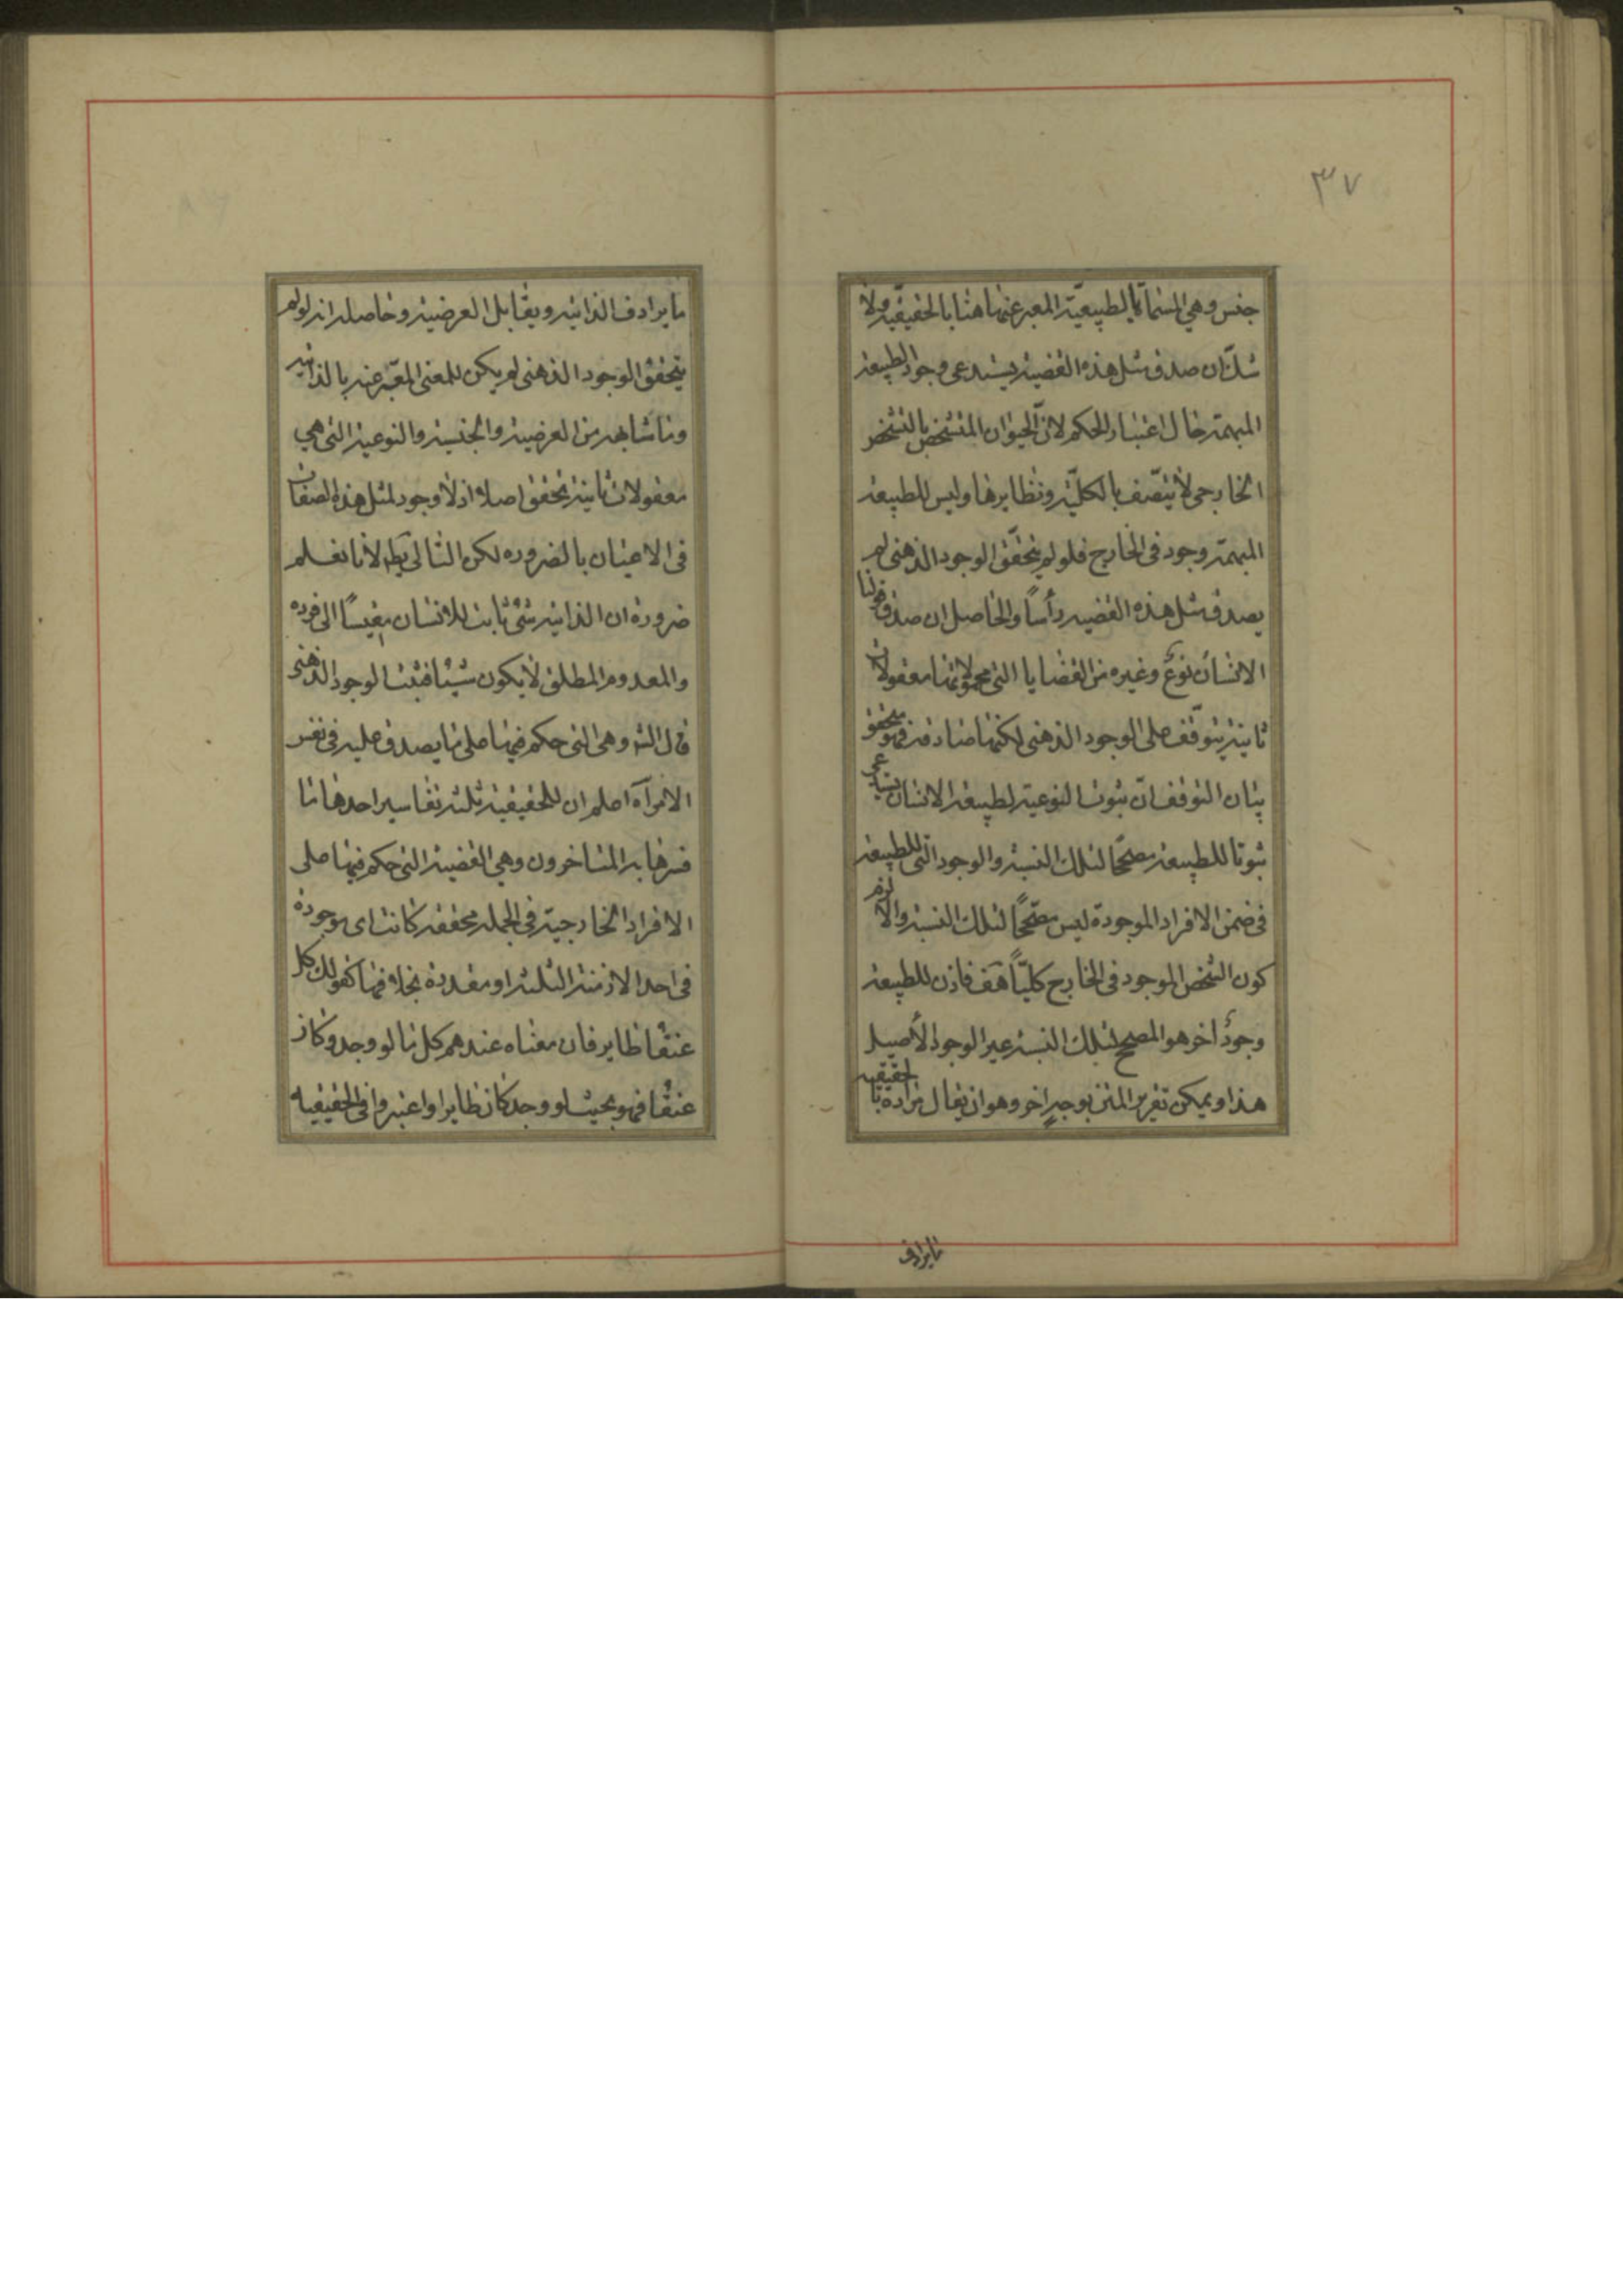 ٣٧
جنس وهي المسماة بالطبيعيّة المعبر عنها هنا بالحقيقيّة ولا
شكّ ان صدق مثل هذه القضية يستدعى وجود الطبيعة
المبهمة حال اعتبار الحكم لانّ الحيوان المتشخص بالتشخص
الخارجى لا يتّصف بالكليّة ونظايرها وليس للطبيعة
المبهمة وجود فى الخارج فلو لم يتحقّق الوجود الذهنى لم
يصدق مثل هذه القضيه رأساً والحاصل ان صدق قولنا
الانسان نوعٌ وغيره من القضايا التى محمولاتها معقولات
ثانية يتوقّف على الوجود الذهنى لكنها صادقة فهو متحقق
بيان التوقف انّ ثبوت النوعية لطبيعة الانسان يستدعى
ثبوتا للطبيعة مصحّحا لتلك النسبة والوجود الّتى للطبيعة
فى ضمن الافراد الموجودة ليس مصحّحاً لتلك النسبة والا لزم
كون الشخص الموجود فى الخارج كليّاً هف فاذن للطبيعة
وجودٌ اخر هو المصحح لتلك النسبة غير الوجود الأصيل
هذا ويمكن تقرير المتن بوجهٍ اخر وهو ان يقال مراده بالحقيقيه
مايرادف
ما يرادف الذاتية ويقابل العرضية وحاصله انه لو لم
يتحقق الوجود الذهنى لم يكن للمعنى المعبّر عنه بالذاتية
وما شابهه من العرضية والجنسية والنوعية التى هي
معقولات ثانية تحقق اصلا اذ لا وجود لمثل هذه الصفات
فى الاعيان بالضروره لكن التالى بَط لانا نعلم
ضرورة ان الذاتية شئ ثابت للانسان مقيسًا الى فرده
والمعدوم المطلق لا يكون شيئا فثبت الوجود الذهنى
قال الشه وهى التى حكم فيها على ما يصدق عليه فى نفس
الامر آه اعلم ان للحقيقية ثلثة تفاسير احدها ما
فسرها به المتاخرون وهي القضية التى حكم فيها على
الافراد الخارجيّة فى الجمله محققه كانت اى موجودة
فى احد الازمنة الثلثة او مقدرة بخلافها كقولك كل
عنقا طاير فان معناه عندهم كل ما لو وجد وكان
عنقا فهو بحيث لو وجد كان طايرا واعتبروا فى الحقيقيه